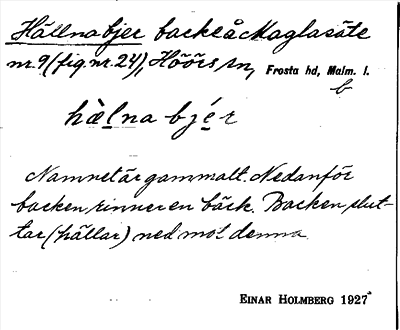 Hällnabjer backe å Maglasäte
nr. 9 (fig. nr. 24), Höörs sn, Frosta hd, Malm. l.
b
hæ̀lna bjér
Namnet är gammalt. Nedanför
backen rinner en bäck. Backen slut-
tar (hällar) ned mot denna.
EINAR HOLMBERG 1927